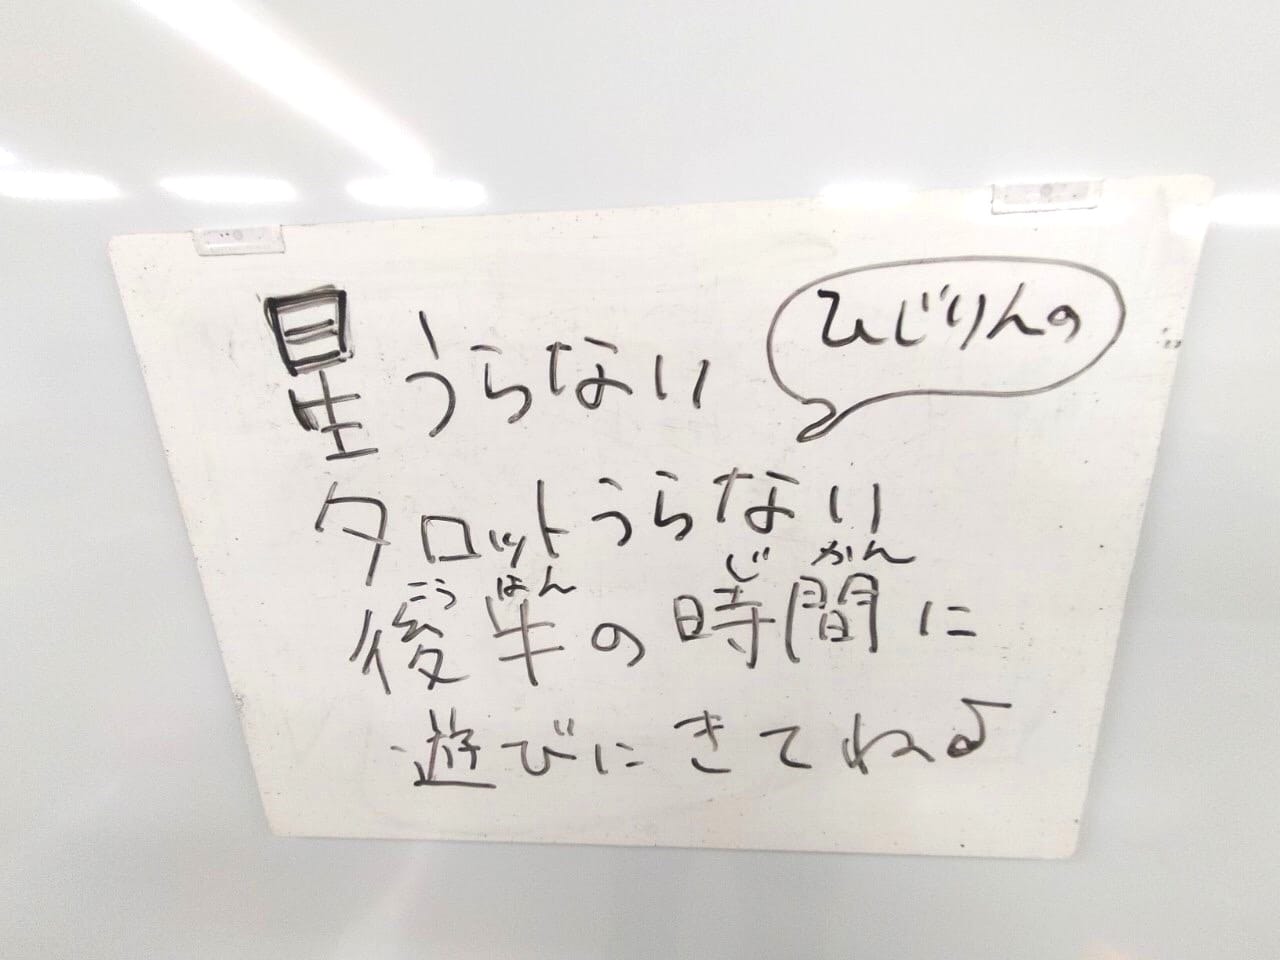 ひじりんの
星うらない
タロットうらない
ごう はん じ かん
後半の時間に
遊びにきてね♪